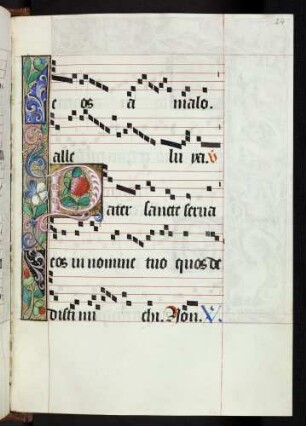 24
e os a malo.
alle lu ya. V
Pater sancte serua
eos in nomine tuo quos de
disti mi chi. Non. V.